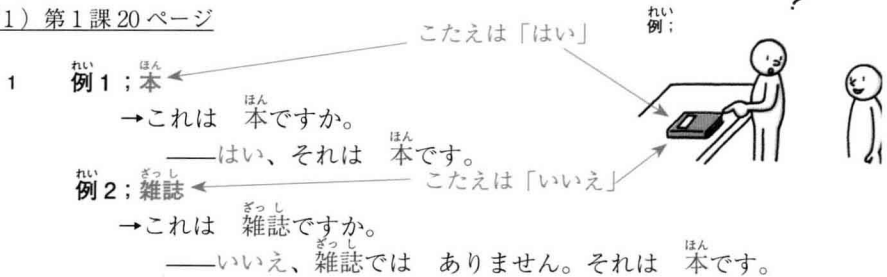 1）第1課20ページ
こたえは「はい」
例；
?
1 例1；本
→これは 本ですか。
——はい、それは 本です。
例2；雑誌
こたえは「いいえ」
→これは 雑誌ですか。
——いいえ、雑誌では ありません。それは 本です。